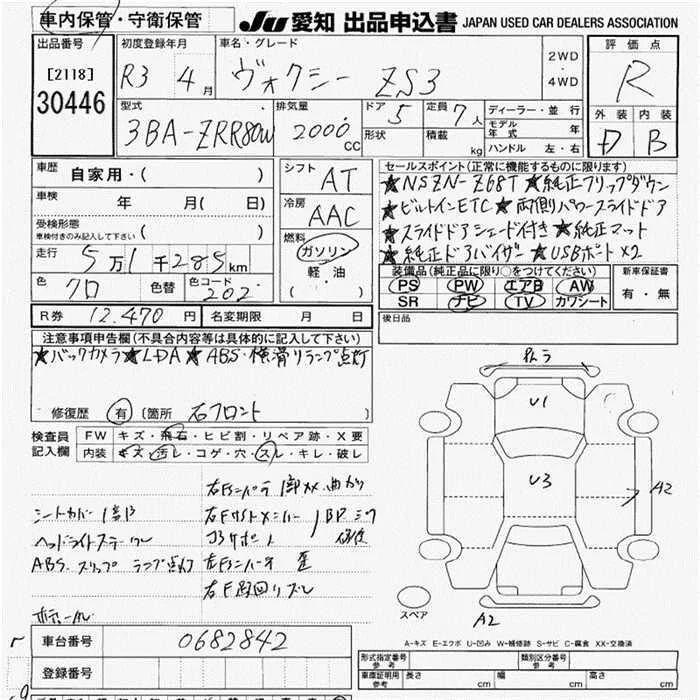 車内保管・守衛保管
JU 愛知 出品申込書 JAPAN USED CAR DEALERS ASSOCIATION
出品番号
[2118]
30446
初度登録年月
R3 4月
車名・グレード
ヴォクシー ZS3
2WD
・
4WD
評価点
R
外装 内装
D B
型式
3BA-ZRR80W
排気量
2000 CC
ドア 5
形状
定員 7人
積載 kg
ディーラー・並行
モデル年式 年
ハンドル 左・右
車歴
自家用・( )
車検
年 月( 日)
受検形態
車検付きのみ記入して下さい ( )
走行
5万1千285km
色 クロ
色替
色コード 202
シフト AT
冷房 AAC
燃料
ガソリン
軽油
( )
セールスポイント(正常に機能するものに限ります)
★NSZN-Z68T ★純正フリップダウン
★ビルトインETC ★両側パワースライドドア
★スライドドアシェード付き ★純正マット
★純正ドアバイザー ★USBポート×2
装備品(純正品に限り○をつけてください)
PS PW エアB AW
SR ナビ TV カワシート
新車保証書
有・無
R券 12,470円
名変期限 月 日
後日品
注意事項申告欄(不具合内容等は具体的に記入して下さい)
★バックカメラ ★LDA ★ABS・横滑りランプ点灯
修復歴 有 [箇所 右フロント ]
検査員記入欄
FW キズ・飛石・ヒビ割・リペア跡・X要
内装 キズ・汚レ・コゲ・穴・スレ・キレ・破レ
シートカバー
ヘッドライトステー
ABS スリップ ランプ点灯
U1
U3
A2
A2
スペア
A-キズ E-エクボ U-凹み W-補修跡 S-サビ C-腐食 XX-交換済
車台番号 0682842
登録番号
形式指定番号 参考
類別区分番号 参考
車庫証明 参考
長さ cm 幅 cm 高さ cm